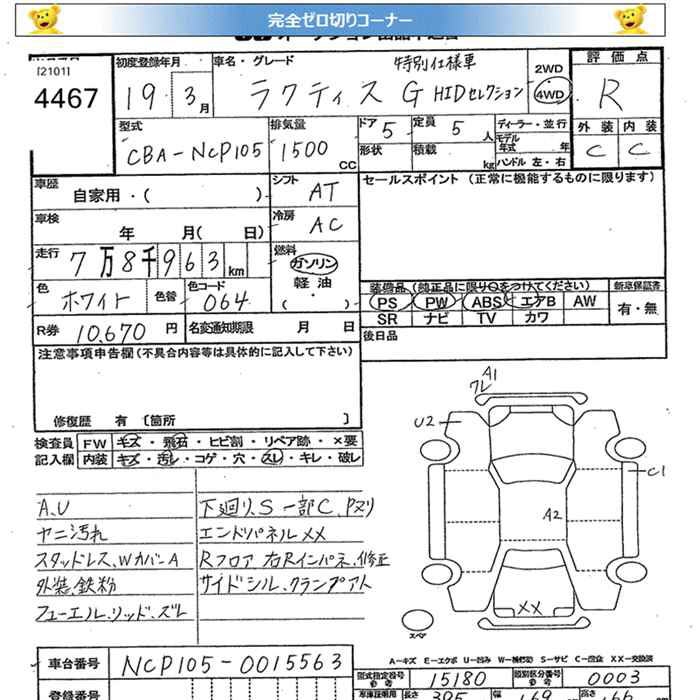 完全ゼロ切りコーナー
[2101]
4467
初度登録年月
19 3月
車名・グレード
特別仕様車
ラクティス G HIDセレクション
2WD
4WD
評価点
R
外装 内装
C C
型式
CBA-NCP105
排気量
1500 CC
ドア 5
定員 5 人
形状
積載 kg
ディーラー・並行
モデル年式 年
ハンドル 左・右
車歴
自家用・( )
シフト
AT
セールスポイント (正常に機能するものに限ります)
車検
年 月( 日)
冷房
AC
走行
7万8千963km
燃料
ガソリン
軽油
( ・ )
色
ホワイト
色替
色コード
064
装備品 (純正品に限り○をつけてください)
新車保証書
PS PW ABS エアB AW
有・無
SR ナビ TV カワ
R券 10,670 円
名変通知期限 月 日
後日品
注意事項申告欄(不具合内容等は具体的に記入して下さい)
修復歴 有 〔箇所 〕
検査員記入欄
FW キズ・飛石・ヒビ割・リペア跡・×要
内装 キズ・汚レ・コゲ・穴・スレ・キレ・破レ
A1
ワレ
U2
C1
A2
XX
スペア
A.U
ヤニ汚れ
スタッドレス、WカバーA
外装、鉄粉
フューエル、リッド、ズレ
下廻り、S 一部C、Pヌリ
エンドパネルXX
Rフロア 右Rインパネ、修正
サイドシル、クランプアト
A-キズ E-エクボ U-凹み W-補修跡 S-サビ C-腐食 XX-交換済
車台番号
NCP105-0015563
型式指定番号
参考
15180
類別区分番号
参考
0003
登録番号
長さ
395
幅
169
高さ